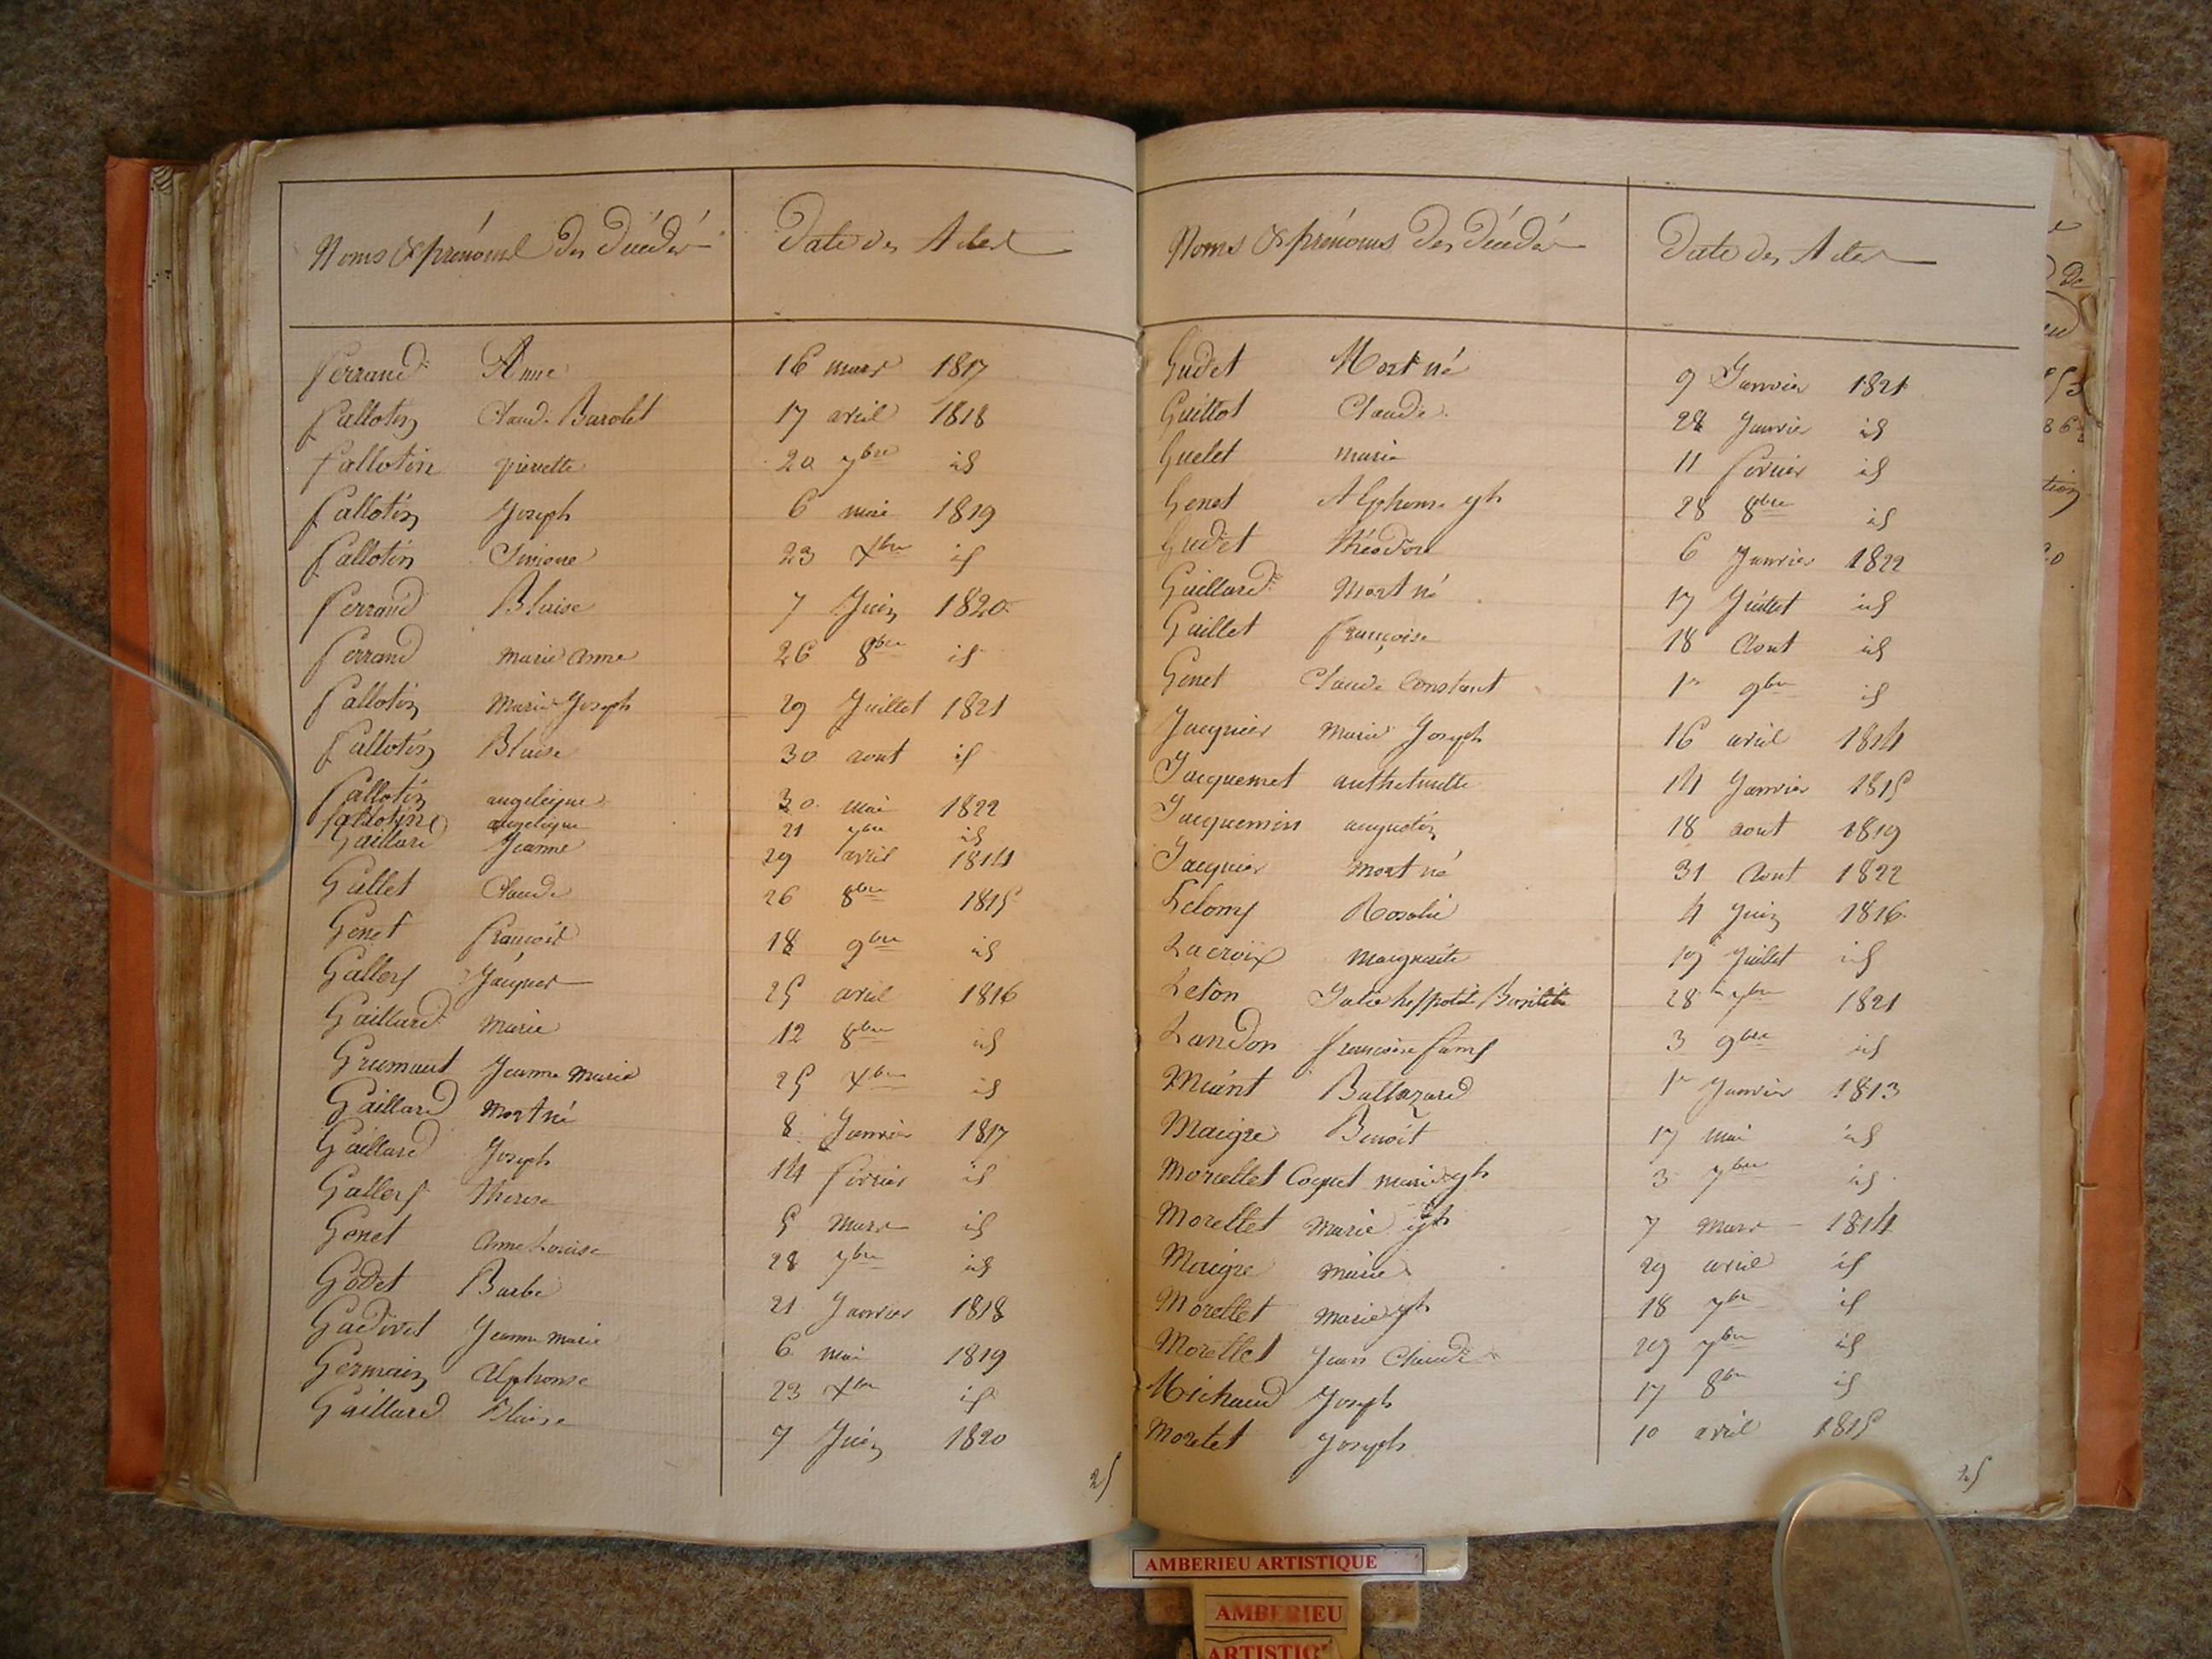 Noms & prénoms des Décédés Date des Actes
ferrand Anne 16 mars 1817
fallotin Claude Barolet 17 avril 1818
fallotin pierrette 20 7bre id
fallotin Joseph 6 mai 1819
fallotin 23 Xbre id
ferrand Blaise 7 Juin 1820
ferrand marie anne 26 8bre id
fallotin Marie Joseph 29 Juillet 1821
fallotin Blaise 30 aout id
fallotin angelique 30 mai 1822
fallotin angelique 21 7bre id
Gaillard Jeanne 29 avril 1814
Gallet Claude 26 8bre 1815
Genet françois 18 9bre id
Gallery Jacques 25 avril 1816
Gaillard Marie 12 8bre id
Grumaut Jeanne Marie 25 Xbre id
Gaillard Mort né 8 Janvier 1817
Gaillard Joseph 14 fevrier id
Gallery therese 5 Mars id
Genet Anne Louise 28 7bre id
Godet Barbe 21 Janvier 1818
Gadivet Jeanne marie 6 mai 1819
Germain Alphonse 23 Xbre id
Gaillard Blaise 7 Juin 1820
25
Noms & prénoms des Décédés Date des Actes
Gudet Mort né 9 Janvier 1821
Guittot Claude 28 Janvier id
Guelet marie 11 fevrier id
Genet Alphonse jph 28 8bre id
Gudet théodore 6 Janvier 1822
Gaillard Mort né 17 Juillet id
Gaillet françoise 18 Aout id
Genet Claude Constant 1er 9bre id
Jacquier Marie Joseph 16 avril 1814
Jacquemet 14 Janvier 1815
Jacquemin augustin 18 aout 1819
Jacquier mort né 31 Aout 1822
Lelomy Rosalie 4 Juin 1816
Lacroix marguerite 19 Juillet id
Leton Julie 28 7bre 1821
Landon françoise 3 9bre id
Miant Baltazard 1er Janvier 1813
Maigre Benoit 17 mai id
Morellet Coquet marie jph 3 7bre id
Morellet Marie jph 7 mars 1814
Maigre Marie 29 avril id
Morellet Marie jph 18 7bre id
Morellet Jean Claude 29 7bre id
Michaud Joseph 17 8bre id
Moretet Joseph 10 avril 1815
25
AMBERIEU ARTISTIQUE
AMBERIEU
ARTISTIQ